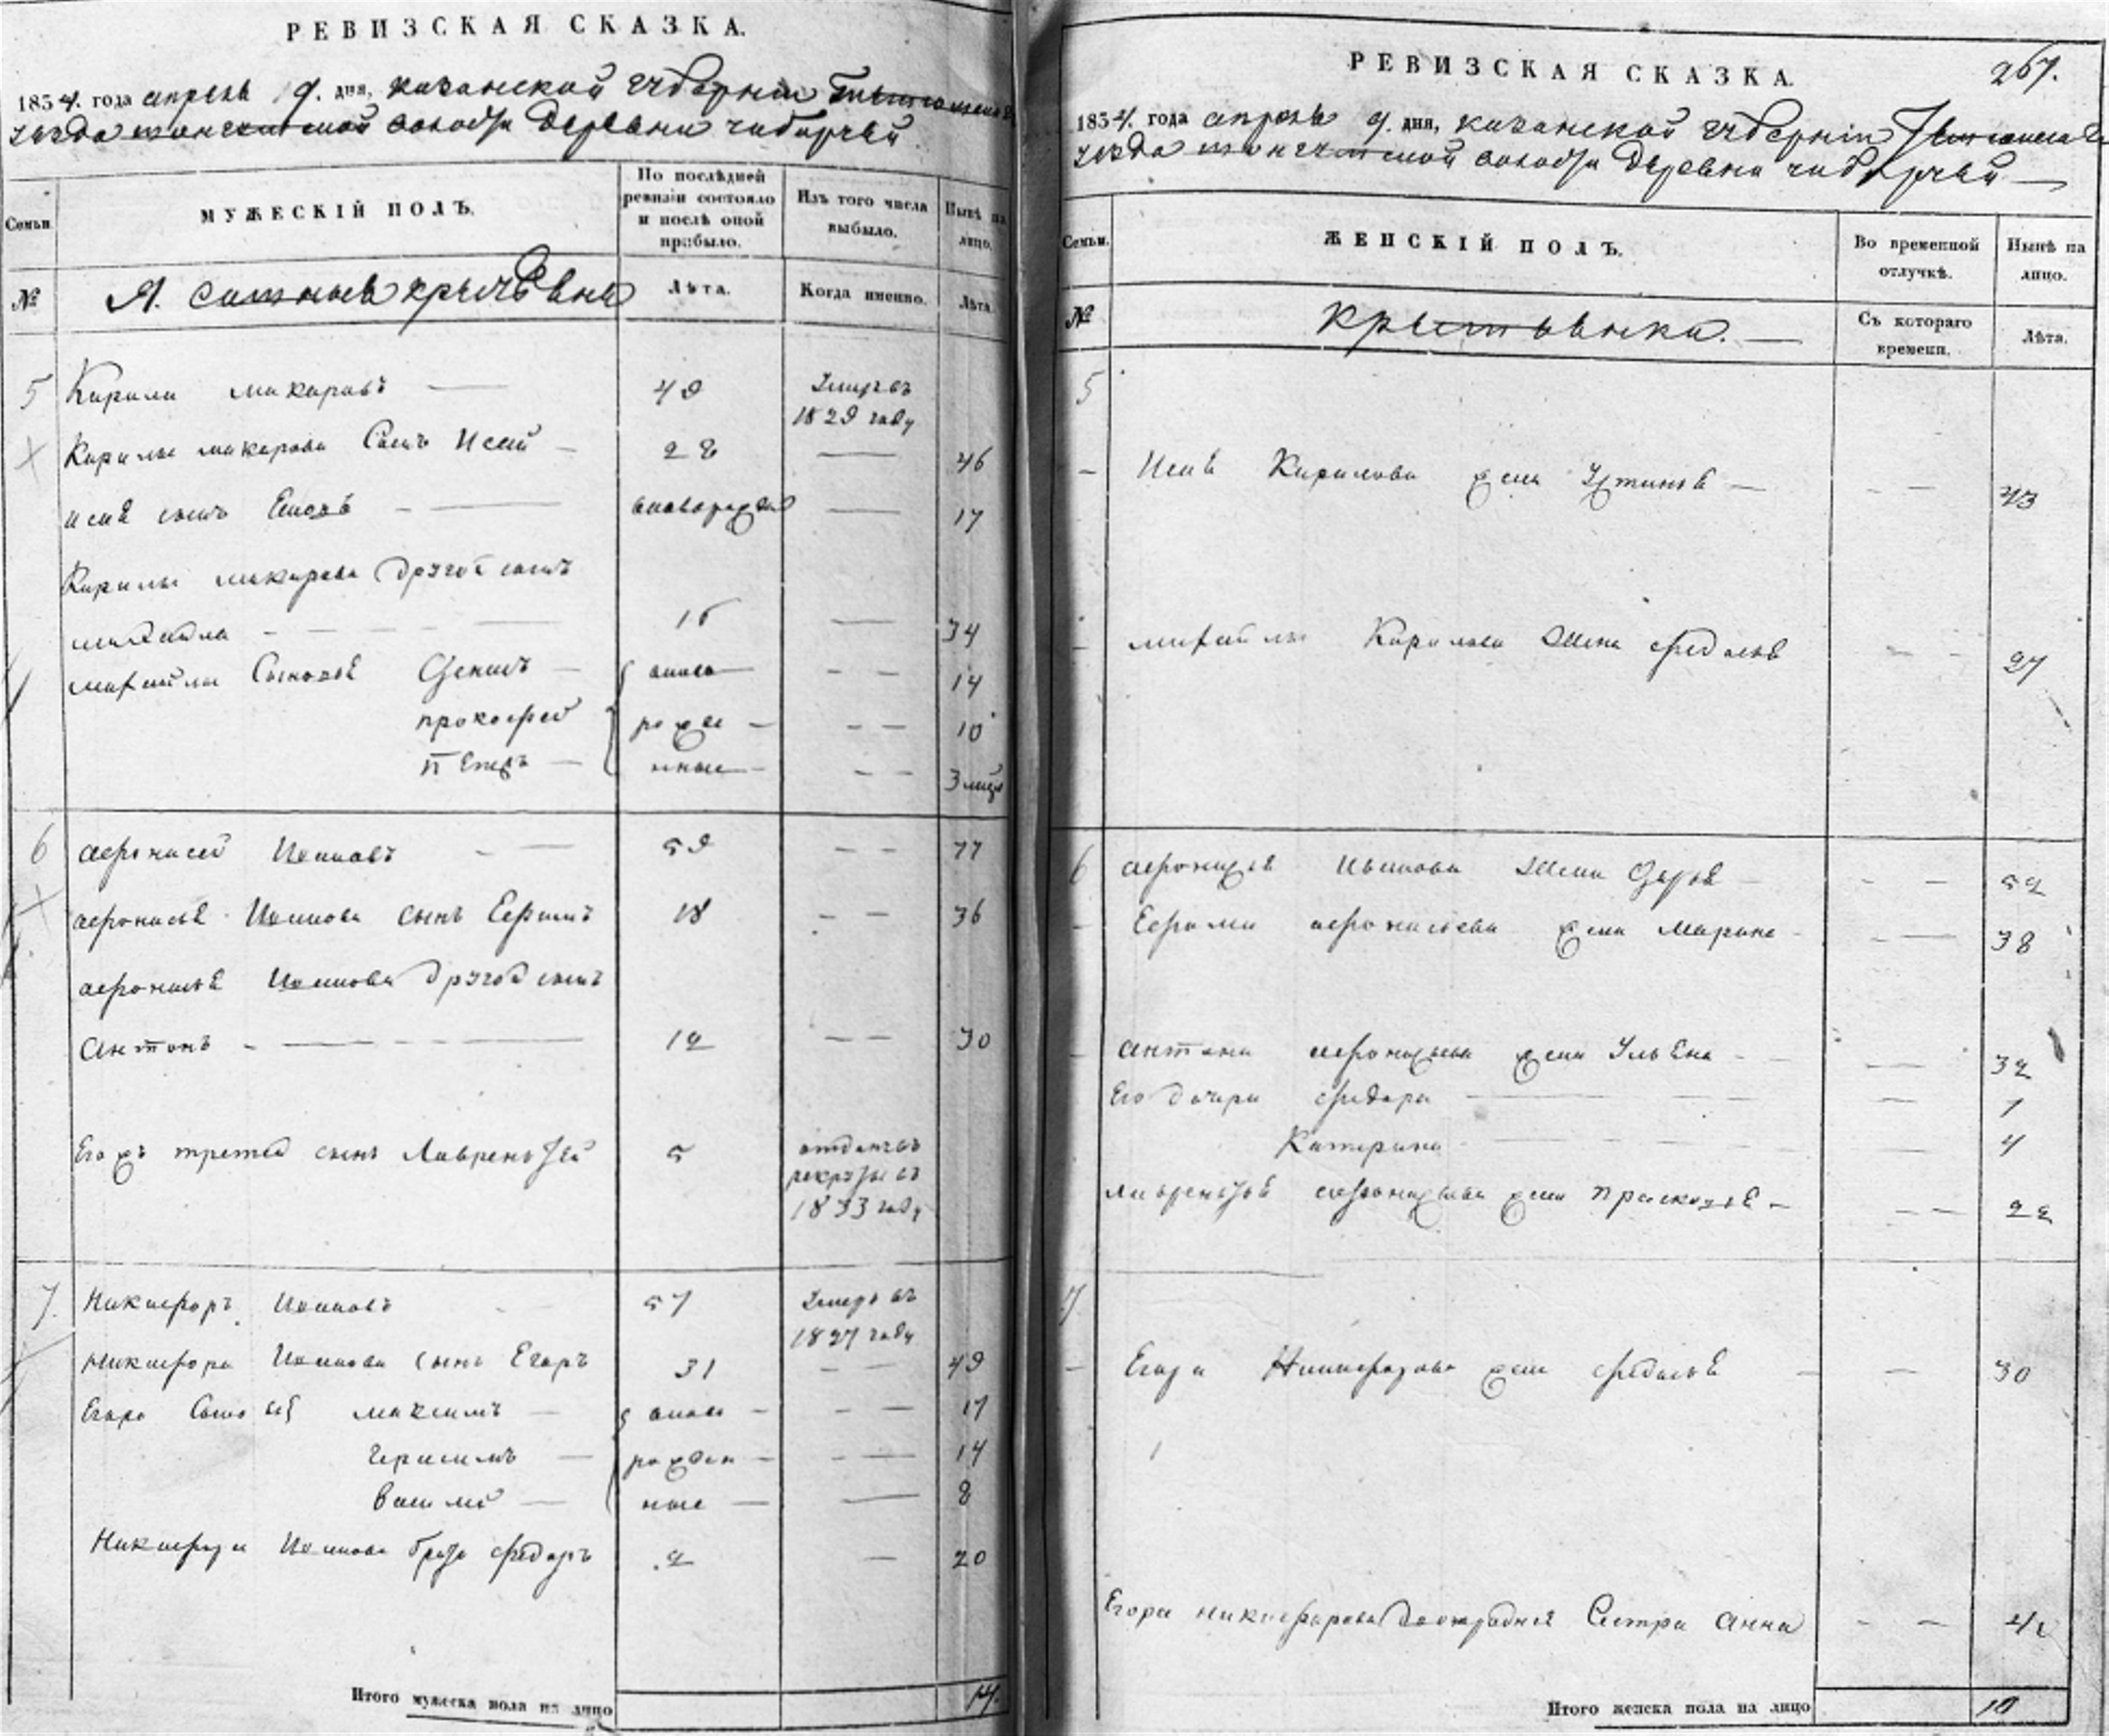 РЕВИЗСКАЯ СКАЗКА.
1834. года апреля 9. дня, казанской губернии
уезда волости деревни чибирчей
Семьи. МУЖЕСКІЙ ПОЛЪ. По послѣдней ревизіи состояло и послѣ оной прибыло. Изъ того числа выбыло. Нынѣ на лицо.
№ Лѣта. Когда именно. Лѣта.
5 Кирила макаровъ 49 Умеръ въ 1829 году
Кирилы макарова Сынъ Исай 28 46
исая сынъ новорожден 17
Кирилы макарова другой сынъ
михаила 16 34
михайлы Сыновья Денисъ вновь 14
прокофей рожде 10
Петръ нные 3 мцъ
6 афонасей Ивановъ 59 77
афонасья Иванова сынъ Ефимъ 18 36
афонасья Иванова другой сынъ
Антонъ 12 30
Его жъ третей сынъ Лаврентей 5 отданъ въ рекруты въ 1833 году
7. Никифоръ Ивановъ 57 Умеръ въ 1827 году
Никифора Иванова сынъ Егоръ 31 49
Егора Сыновья максимъ вновь 17
Герасимъ рожден 14
Василей ные 8
Никифора Иванова братъ федоръ 2 20
Итого мужеска пола на лицо 14.
267.
РЕВИЗСКАЯ СКАЗКА.
1834. года апреля 9. дня, казанской губернии
уезда волости деревни чибирчей
Семьи. ЖЕНСКІЙ ПОЛЪ. Во временной отлучкѣ. Нынѣ на лицо.
№ Съ котораго времени. Лѣта.
5
Исая Кирилова жена Устинья 43
михайлы Кирилова жена федосья 27
6 афонасья Иванова жена Дарья 52
Ефима афонасьева жена Марина 38
антона афонасьева жена Ульена 32
Его дочери федора 7
Катерина 4
лаврентья афонасьева жена Прасковья 22
7.
Егора Никифорова жена федосья 30
Егора никифорова двоюродная Сестра Анна
Итого женска пола на лицо 10